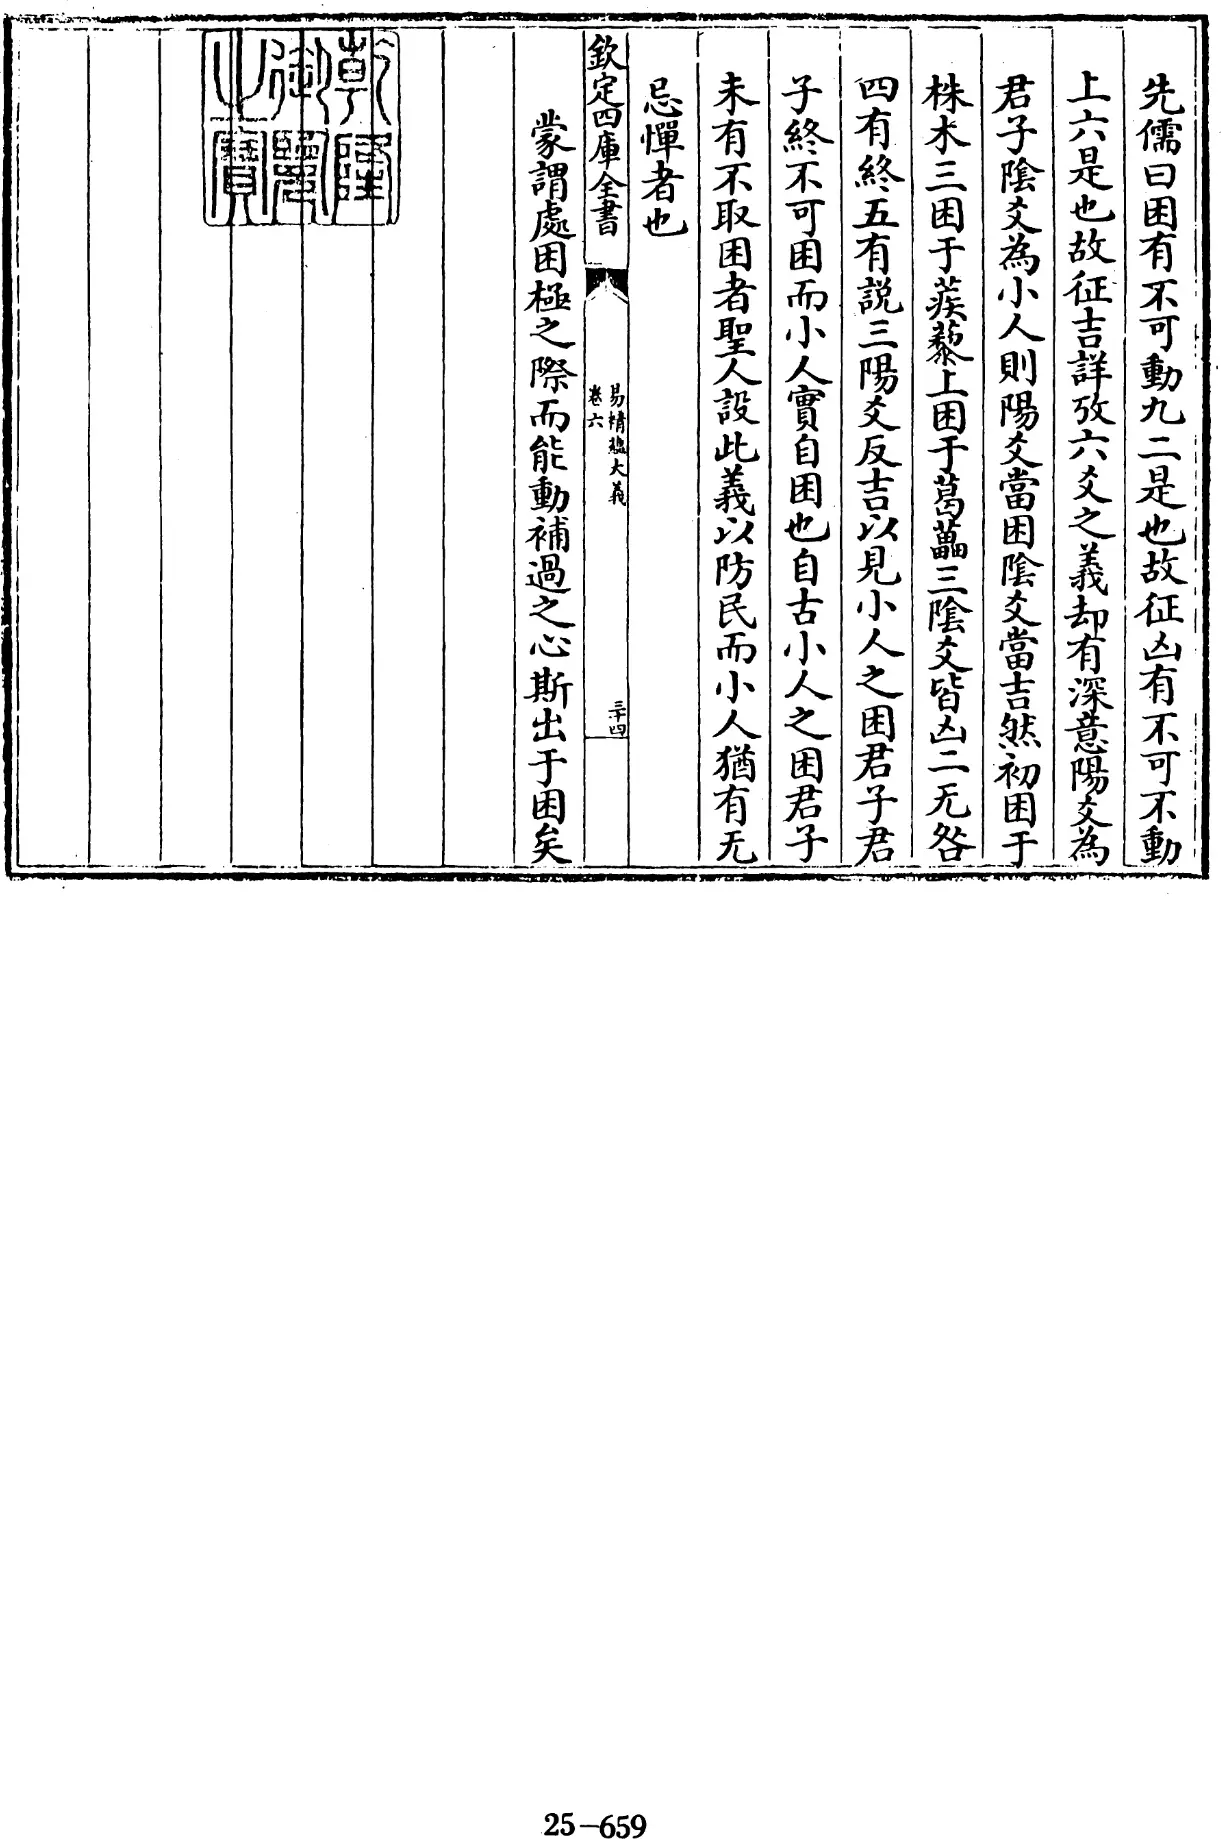 先儒曰困有不可動九二是也故征凶有不可不動
上六是也故征吉詳攷六爻之義却有深意陽爻為
君子陰爻為小人則陽爻當困陰爻當吉然初困于
株木三困于蒺藜上困于葛藟三陰爻皆凶二无咎
四有終五有説三陽爻反吉以見小人之困君子君
子終不可困而小人實自困也自古小人之困君子
未有不取困者聖人設此義以防民而小人猶有无
忌憚者也
欽定四庫全書
易精蘊大義
卷六
三十四
蒙謂處困極之際而能動補過之心斯出于困矣
乾隆
御覽
之寶
25-659